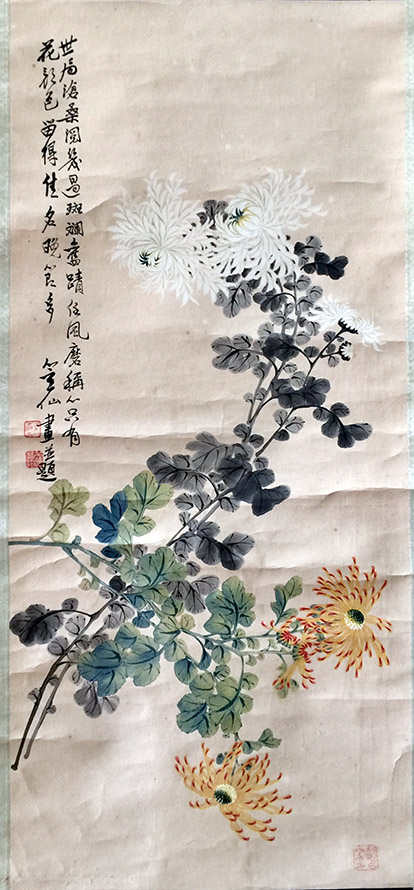 世局滄桑閱幾過斑斕舊蹟任風磨稱心只有
花顏色留得佳名晚節多
心仙畫並題